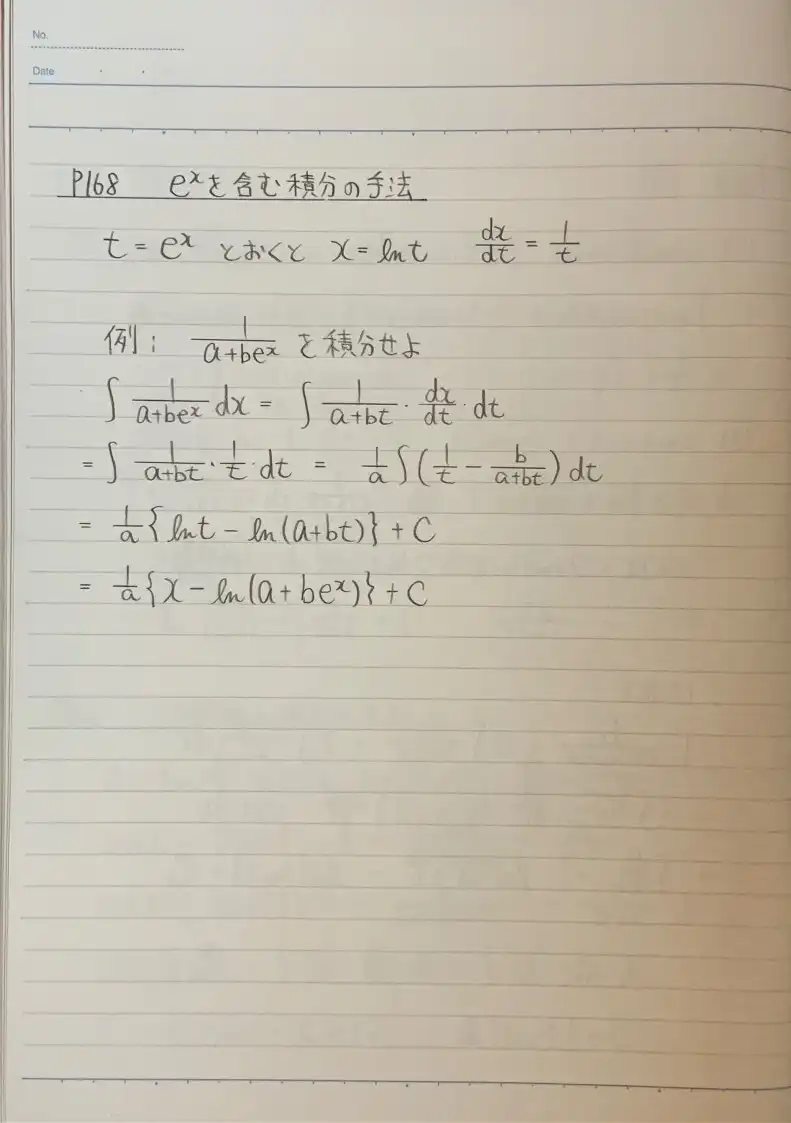 No.
Date . .
P168 eˣを含む積分の手法
t = eˣ とおくと x = ln t dx/dt = 1/t
例: 1/(a+beˣ) を積分せよ
∫ 1/(a+beˣ) dx = ∫ 1/(a+bt) · dx/dt · dt
= ∫ 1/(a+bt) · 1/t · dt = 1/a ∫ (1/t − b/(a+bt)) dt
= 1/a {ln t − ln(a+bt)} + C
= 1/a {x − ln(a+beˣ)} + C